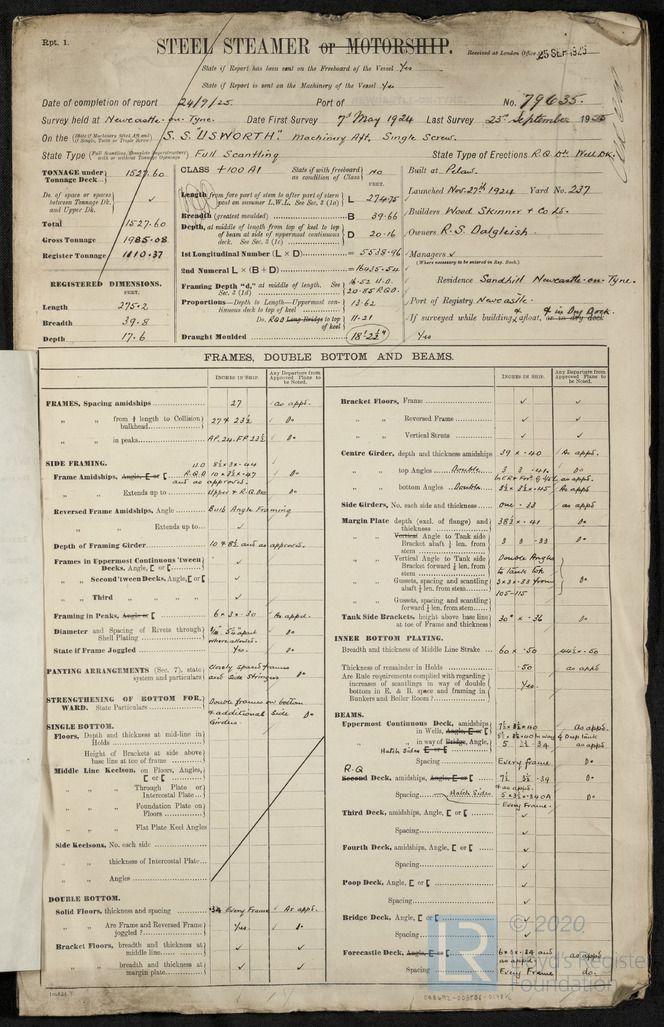 Rpt. 1.
STEEL STEAMER or MOTORSHIP.
Received at London Office 25 SEP 1925
State if Report has been sent on the Freeboard of the Vessel Yes
State if Report is sent on the Machinery of the Vessel Yes
Date of completion of report 24/9/25. Port of NEWCASTLE-ON-TYNE. No. 79635.
Survey held at Newcastle-on-Tyne. Date First Survey 7th May 1924 Last Survey 25th September 1925
On the (State if Machinery fitted Aft and if Single, Twin or Triple Screw) S.S. "USWORTH" Machinery Aft. Single Screw.
State Type (Full Scantlings, Complete Superstructure with or without Tonnage Openings) Full Scantling State Type of Erections R.Q. Dk. Well Dk.
TONNAGE under Tonnage Deck 1527.60
Do. of space or spaces between Tonnage Dk. and Upper Dk. ✓
Total 1527.60
Gross Tonnage 1985.08
Register Tonnage 1110.37
REGISTERED DIMENSIONS.
FEET.
Length 275.2
Breadth 39.8
Depth 17.6
CLASS +100 A1 State if with freeboard as condition of Class No
FEET.
Length from fore part of stem to after part of stern post on summer L.W.L. See Sec. 3 (1a) L 274.75
Breadth (greatest moulded) B 39.66
Depth, at middle of length from top of keel to top of beam at side of uppermost continuous deck. See Sec. 3 (1c) D 20.16
1st Longitudinal Number (L × D) = 5538.96
2nd Numeral L × (B + D) = 16435.54
Framing Depth "d," at middle of length. See Sec. 3 (1d) 16.52 U.D. 20.85 R.Q.D.
Proportions—Depth to Length—Uppermost continuous deck to top of keel 13.62
Do. RQD Long Bridge to top of keel 11.21
Draught Moulded 18' 2½"
Built at Pelaw.
Launched Nov. 27th 1924 Yard No. 237
Builders Wood Skinner & Co Ld.
Owners R.S. Dalgleish.
Managers ✓
(Where necessary to be entered in Reg. Book.)
Residence Sandhill Newcastle-on-Tyne.
Port of Registry Newcastle.
If surveyed while building, afloat, or in dry dock & in Dry Dock.
Yes
FRAMES, DOUBLE BOTTOM AND BEAMS.
INCHES IN SHIP. Any Departure from Approved Plans to be Noted.
FRAMES, Spacing amidships 27 as appd.
" " from ⅕ length to Collision bulkhead 27 & 23½ Do
" " in peaks AP. 24. FP 23½ Do
SIDE FRAMING.
Frame Amidships, Angle, [ or [ U.D 8½ x 3 x .44 R.Q.D 10 x 3½ x .47 and as approved. Do
" " Extends up to Upper & R.Q Dks Do
Reversed Frame Amidships, Angle Bulb Angle Framing
" " Extends up to ✓
Depth of Framing Girder 10 & 8½ and as approved.
Frames in Uppermost Continuous 'tween Decks, Angle, [ or [ ✓
" " Second 'tween Decks, Angle, [ or [ ✓
" " Third " " " " ✓
Framing in Peaks, Angle or [ 6 x 3 x .30 As appd.
Diameter and Spacing of Rivets through Shell Plating
State if Frame Joggled Yes. Do
PANTING ARRANGEMENTS (Sec. 7), state system and particulars Closely spaced frames and Side Stringers Do
STRENGTHENING OF BOTTOM FORWARD. State Particulars Double frames on bottom & additional side Girders. Do
SINGLE BOTTOM.
Floors, Depth and thickness at mid-line in Holds
" Height of Brackets at side above base line at toe of frame
Middle Line Keelson, on Floors, Angles, [ or [
" " Through Plate or Intercostal Plate
" " Foundation Plate on Floors
" " Flat Plate Keel Angles
Side Keelsons, No. each side
" " thickness of Intercostal Plate
" " Angles
DOUBLE BOTTOM.
Solid Floors, thickness and spacing .34 Every Frame As appd.
" " Are Frame and Reversed Frame joggled? Yes. Do
Bracket Floors, breadth and thickness at middle line ✓ ✓
" " breadth and thickness at margin plate ✓ ✓
INCHES IN SHIP. Any Departure from Approved Plans to be Noted.
Bracket Floors, Frame ✓ ✓
" " Reversed Frame ✓ ✓
" " Vertical Struts ✓ ✓
Centre Girder, depth and thickness amidships 39 x .40 As appd.
" " top Angles Double 3 3 .41 Do
" " bottom Angles Double 3½ x 3½ x .45 As appd
Side Girders, No. each side and thickness one .33 as appd
Margin Plate depth (excl. of flange) and thickness 38½ x .41 Do
" " Vertical Angle to Tank side Bracket abaft ¼ len. from stem 3 3 .33 Do
" " Vertical Angle to Tank side Bracket forward ¼ len. from stem Double Angle to Tank top
" " Gussets, spacing and scantling abaft ¼ len. from stem 3 x 3 x .33 from 105-115 Do
" " Gussets, spacing and scantling forward ¼ len. from stem
Tank Side Brackets, height above base line at toe of Frame and thickness 30" x .36 Do
INNER BOTTOM PLATING.
Breadth and thickness of Middle Line Strake 60 x .50 44½ x .50
Thickness of remainder in Holds .50 as appd
Are Rule requirements complied with regarding increases of scantlings in way of double bottom in E. & B. space and framing in Bunkers and Boiler Room? Yes.
BEAMS.
Uppermost Continuous Deck, amidships in Wells, Angle, [ or [ 7½ x 3½ x .40 As appd.
" " in way of Bridge, Angle, [ or [ Hatch Sides 5 3½ .34 as appd
Spacing Every frame Do
R.Q Second Deck, amidships, Angle, [ or [ 7½ 3½ .39 Do
& as appd.
Spacing Hatch Sides 5 x 3½ x .34 OA Do
Every Frame.
Third Deck, amidships, Angle, [ or [ ✓
Spacing ✓
Fourth Deck, amidships, Angle, [ or [ ✓
Spacing ✓
Poop Deck, Angle, [ or [ ✓
Spacing ✓
Bridge Deck, Angle, [ or [ ✓
Spacing ✓
Forecastle Deck, Angle, [ or [ 6 x 3 x .34 and as appd as appd
Spacing Every Frame do.
© 2020
LR
Lloyd's Register
Foundation